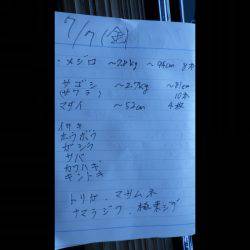 7/7(金)
・メジロ 〜2.8kg 〜94cm 8本
サゴシ 〜2.7kg 〜81cm
(サワラ) 10本
マダイ 〜52cm 4枚
イサキ
ホウボウ
ガシラ
サバ
カワハギ
キントキ
トリガ、マサムネ
ナマラジグ、極楽ジグ